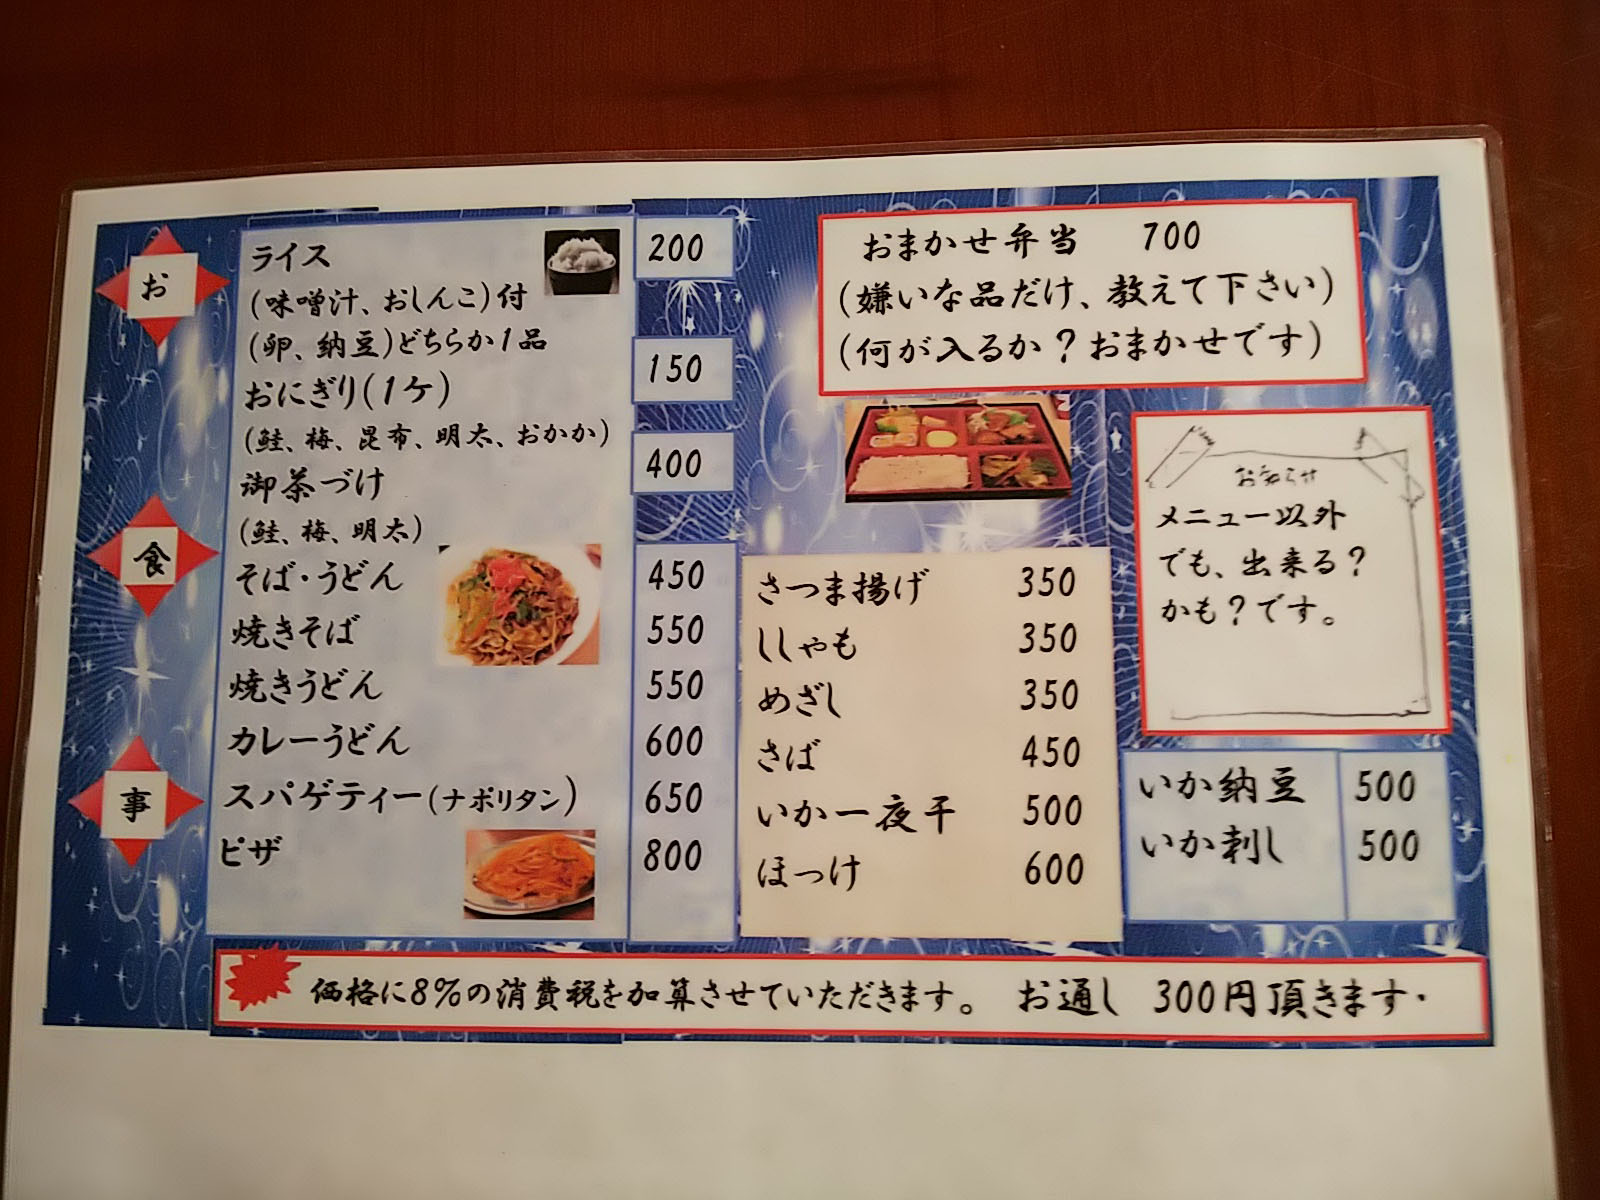 お食事
ライス 200
(味噌汁、おしんこ)付
(卵、納豆)どちらか1品
おにぎり(1ケ) 150
(鮭、梅、昆布、明太、おかか)
御茶づけ 400
(鮭、梅、明太)
そば・うどん 450
焼きそば 550
焼きうどん 550
カレーうどん 600
スパゲティー(ナポリタン) 650
ピザ 800
おまかせ弁当 700
(嫌いな品だけ、教えて下さい)
(何が入るか?おまかせです)
さつま揚げ 350
ししゃも 350
めざし 350
さば 450
いか一夜干 500
ほっけ 600
お知らせ
メニュー以外
でも、出来る?
かも?です。
いか納豆 500
いか刺し 500
価格に8%の消費税を加算させていただきます。 お通し 300円頂きます・